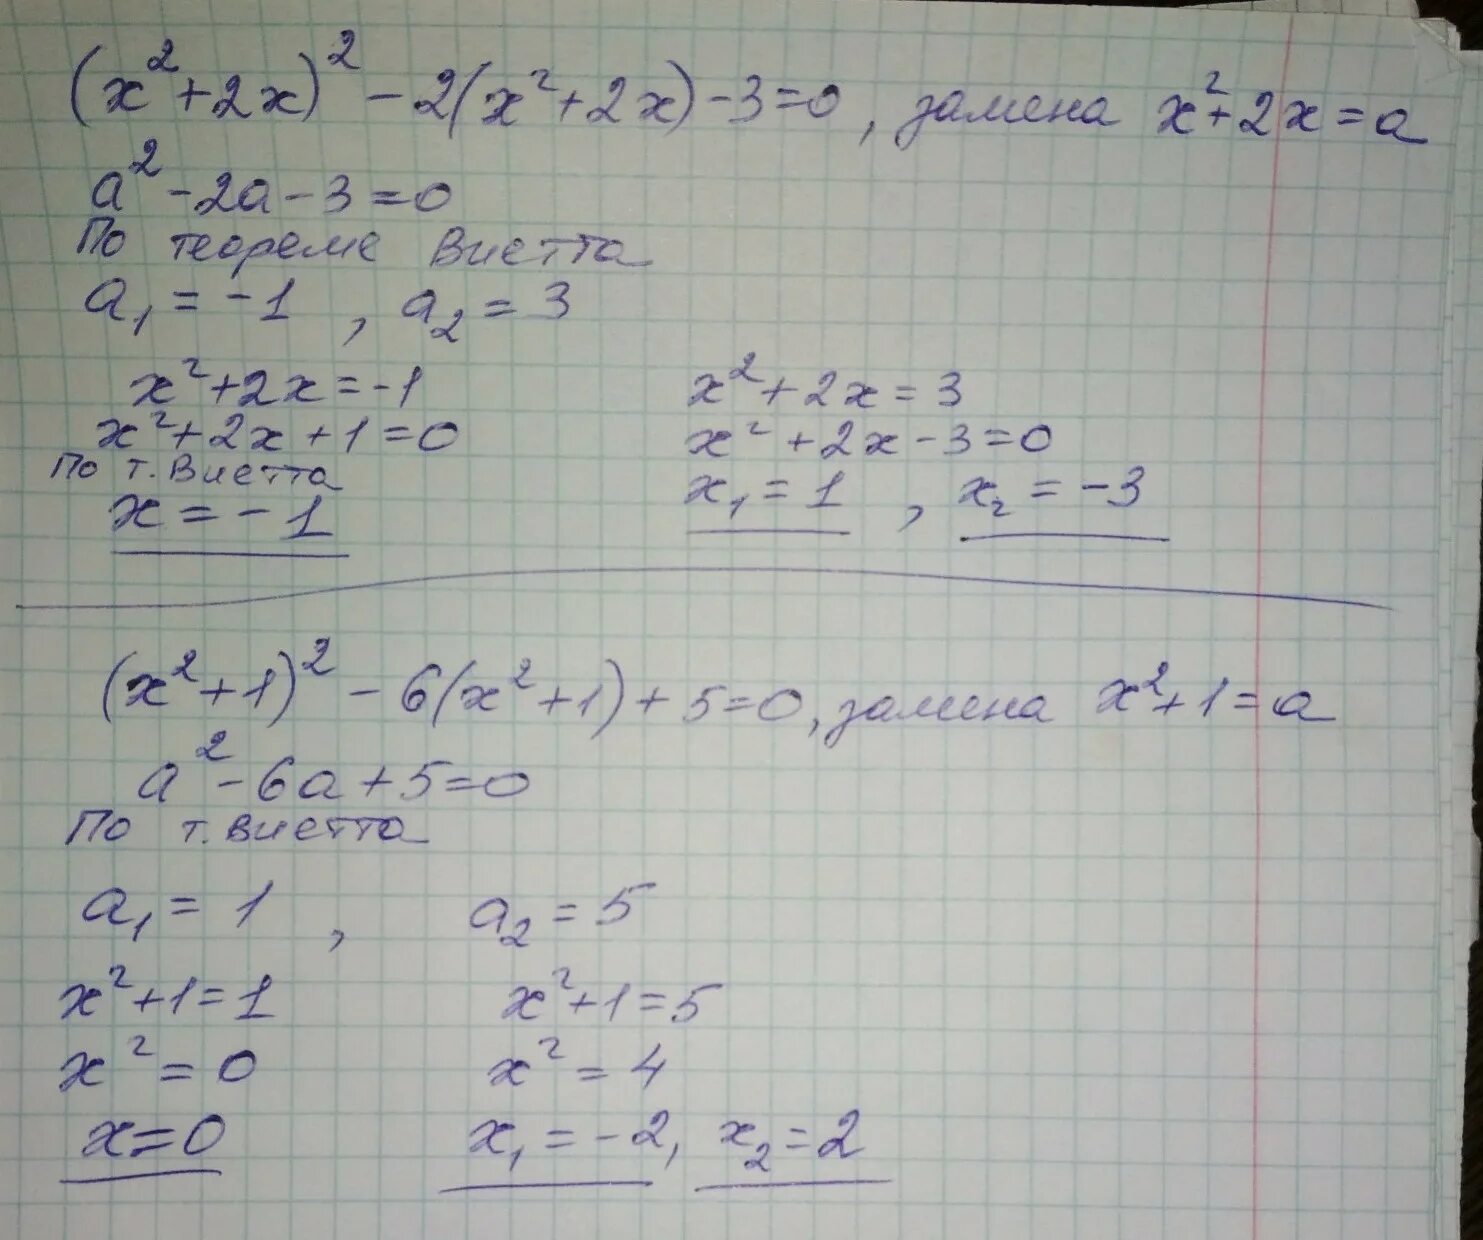 (x²+2x)² - 2(x²+2x) - 3 = 0, замена x²+2x = a
a² - 2a - 3 = 0
По теореме Виетта
a₁ = -1, a₂ = 3
x²+2x = -1
x²+2x+1 = 0
По т. Виетта
x = -1
x²+2x = 3
x²+2x-3 = 0
x₁ = 1, x₂ = -3
(x²+1)² - 6(x²+1) + 5 = 0, замена x²+1 = a
a² - 6a + 5 = 0
По т. Виетта
a₁ = 1, a₂ = 5
x²+1 = 1
x² = 0
x = 0
x²+1 = 5
x² = 4
x₁ = -2, x₂ = 2